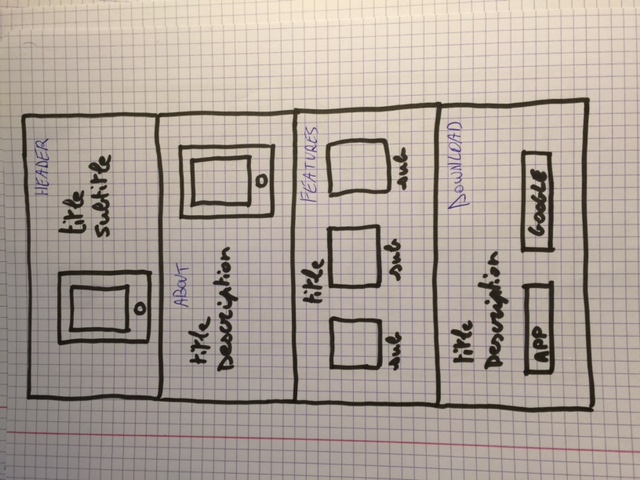 HEADER
title
subtitle
ABOUT
title
Description
title FEATURES
sub sub sub
title DOWNLOAD
Description
APP GOOGLE